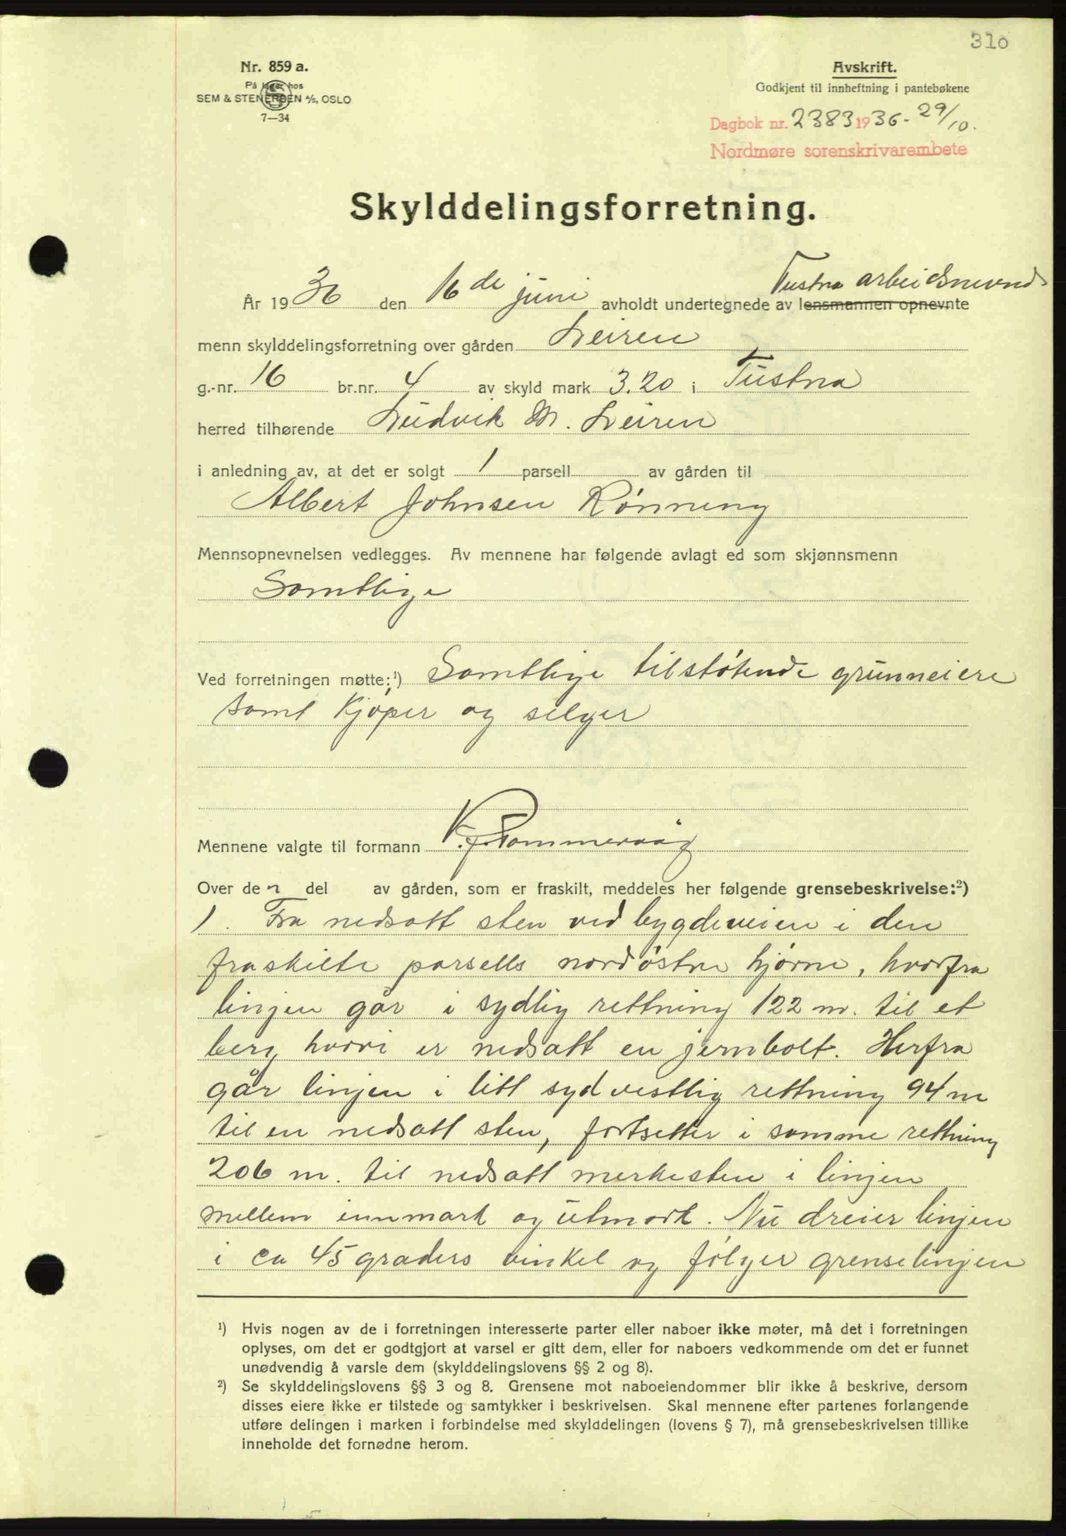 310
Nr. 859 a.
På lager hos
SEM & STENERSEN A/S, OSLO
7—34
Avskrift.
Godkjent til innheftning i pantebøkene
Dagbok nr. 2383 1936 - 29/10.
Nordmøre sorenskrivarembete
Skylddelingsforretning.
Tustna arbeidsnevnd
År 1936 den 16de juni avholdt undertegnede av lensmannen opnevnte
menn skylddelingsforretning over gården Leiren
g.-nr. 16 br.nr. 4 av skyld mark 3.20 i Tustna
herred tilhørende Ludvik M. Leiren
i anledning av, at det er solgt 1 parsell av gården til
Albert Johnsen Rønning
Mennsopnevnelsen vedlegges. Av mennene har følgende avlagt ed som skjønnsmenn
Samtlige
Ved forretningen møtte:¹) Samtlige tilstøtende grunneiere
samt kjøper og selger
Mennene valgte til formann
Over de n del av gården, som er fraskilt, meddeles her følgende grensebeskrivelse:²)
1. Fra nedsatt sten ved bygdeveien i den
fraskilte parsells nordøstre hjørne, hvorfra
linjen går i sydlig rettning 122 m. til et
berg hvori er nedsatt en jernbolt. Herfra
går linjen i litt sydvestlig rettning 94 m
til en nedsatt sten, fortsetter i samme rettning
206 m. til nedsatt merkesten i linjen
mellem innmark og utmark. Nu dreier linjen
i ca 45 graders vinkel og følger grenselinjen
¹) Hvis nogen av de i forretningen interesserte parter eller naboer ikke møter, må det i forretningen
oplyses, om det er godtgjort at varsel er gitt dem, eller for naboers vedkommende om det er funnet
unødvendig å varsle dem (skylddelingslovens §§ 2 og 8).
²) Se skylddelingslovens §§ 3 og 8. Grensene mot naboeiendommer blir ikke å beskrive, dersom
disses eiere ikke er tilstede og samtykker i beskrivelsen. Skal mennene efter partenes forlangende
utføre delingen i marken i forbindelse med skylddelingen (lovens § 7), må grensebeskrivelsen tillike
inneholde det fornødne herom.